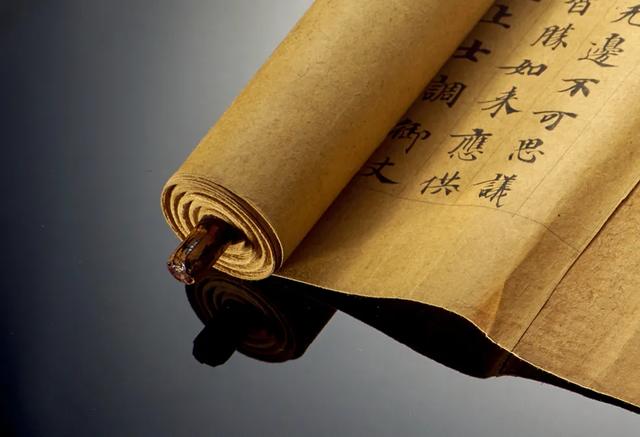 无邊不可思議
智勝如来應供
上士調御丈